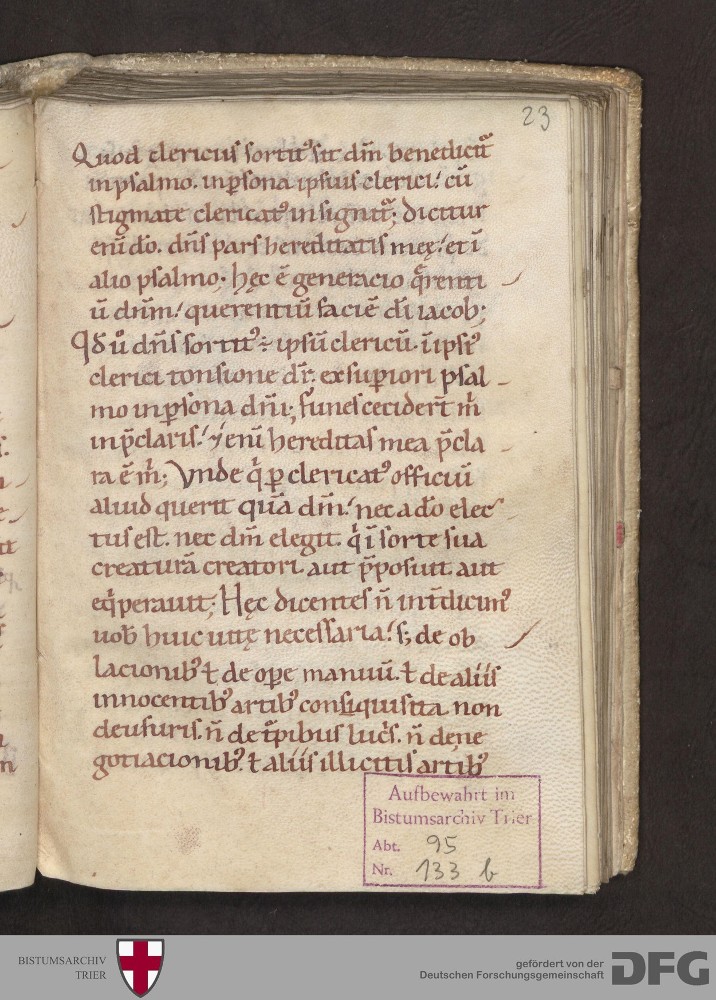 23
Quod clericus sortit᷒ sit dn̄m benedicit᷑
in psalmo. in ꝑsona ipsius clerici! cū
stigmate clericat᷒ insignit᷑; dicitur
enī do. dn̄s pars hereditatis meę! et ī
alio psalmo; hęc ē generacio q̄renti
ū dn̄m! querentiū faciē dī iacob;
Qd̄ ů dn̄s sortit᷒ ÷ ipsū clericū. ī ipsi᷒
clerici tonsione dr̄. ex supiori psal
mo in ꝑsona dn̄i; funes cecidert̄ m̄
in p̄claris! ⁊ enī hereditas mea p̄cla
ra ē m̄; Vnde q̇ ꝑ clericat᷒ officiū
aliud querit quā dn̄m! nec a do elec
tus est. nec dn̄m elegit. q̇ ī sorte sua
creaturā creatori. aut p̄posuit aut
eq̇perauit; Hęc dicentes n̄ int̄dicim᷒
uob̄ huic uitę necessaria! s; de ob
lacionib᷒ ł de oꝑe manuū. ł de aliis
innocentib᷒ artib᷒ conquisita non
de usuris. n̄ de t̄pibus luc̄s. n̄ de ne
gotiacionib᷒. ł aliis illicitis artib᷒
Aufbewahrt im
Bistumsarchiv Trier
Abt. 95
Nr. 133 b
BISTUMSARCHIV
TRIER
gefördert von der
Deutschen Forschungsgemeinschaft
DFG